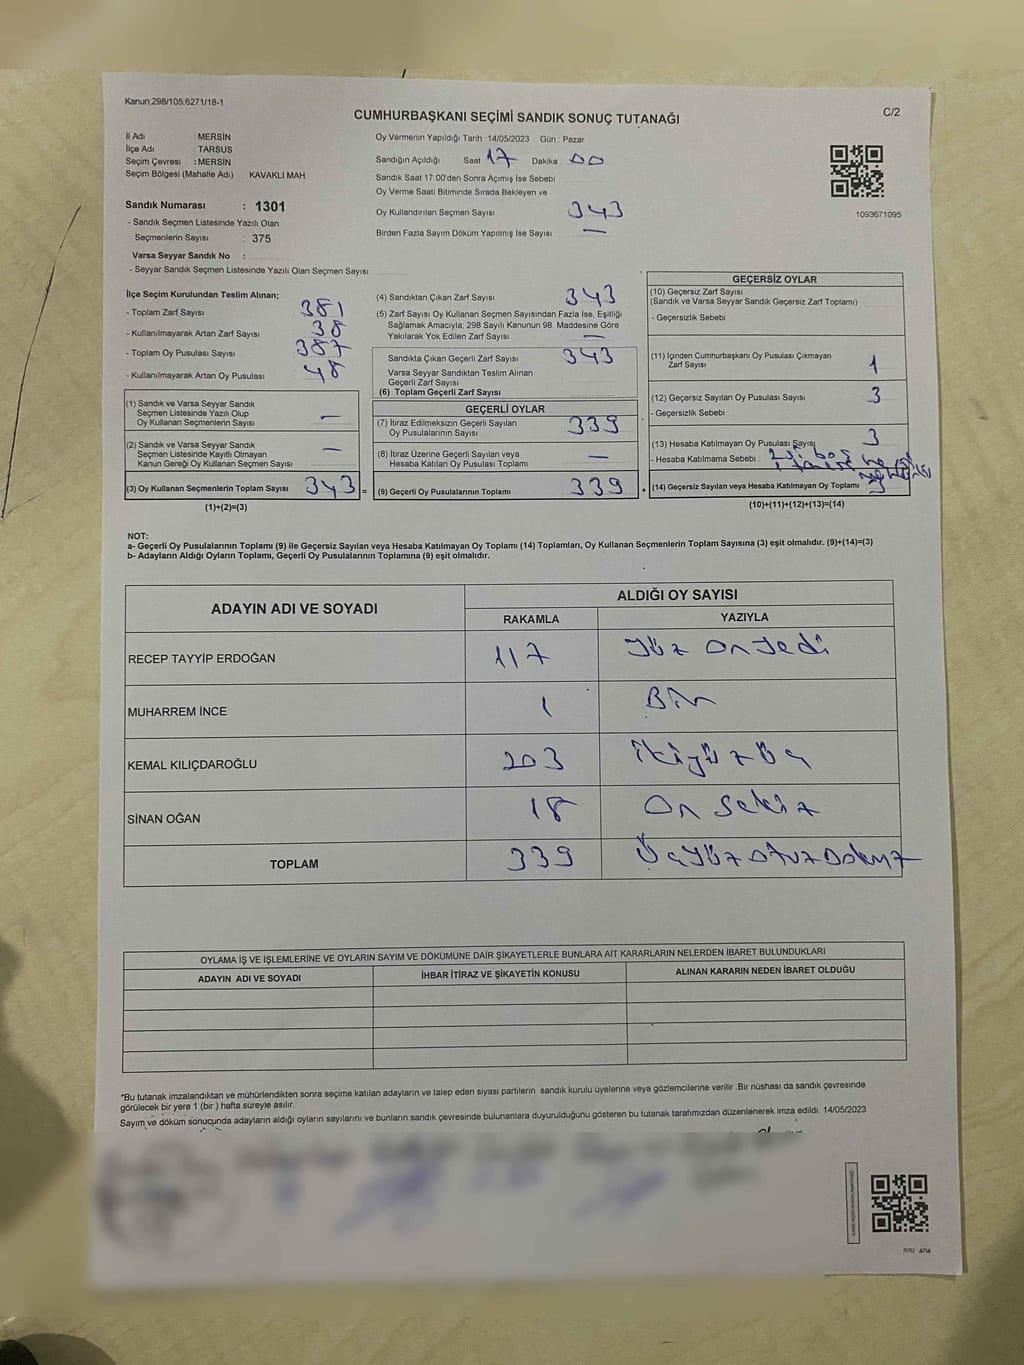 Kanun;298/105;6271/18-1
C/2
CUMHURBAŞKANI SEÇİMİ SANDIK SONUÇ TUTANAĞI
İl Adı : MERSİN
İlçe Adı : TARSUS
Seçim Çevresi : MERSİN
Seçim Bölgesi (Mahalle Adı) KAVAKLI MAH.
Sandık Numarası : 1301
- Sandık Seçmen Listesinde Yazılı Olan
Seçmenlerin Sayısı : 375
Varsa Seyyar Sandık No :
- Seyyar Sandık Seçmen Listesinde Yazılı Olan Seçmen Sayısı
Oy Vermenin Yapıldığı Tarih :14/05/2023 Gün : Pazar
Sandığın Açıldığı Saat 17 Dakika : 00
Sandık Saat 17:00'den Sonra Açımış İse Sebebi
Oy Verme Saati Bitiminde Sırada Bekleyen ve
Oy Kullandırılan Seçmen Sayısı 343
Birden Fazla Sayım Döküm Yapılmış İse Sayısı —
1093671095
İlçe Seçim Kurulundan Teslim Alınan;
- Toplam Zarf Sayısı 381
- Kullanılmayarak Artan Zarf Sayısı 38
- Toplam Oy Pusulası Sayısı 387
- Kullanılmayarak Artan Oy Pusulası 48
(1) Sandık ve Varsa Seyyar Sandık
Seçmen Listesinde Yazılı Olup
Oy Kullanan Seçmenlerin Sayısı —
(2) Sandık ve Varsa Seyyar Sandık
Seçmen Listesinde Kayıtlı Olmayan
Kanun Gereği Oy Kullanan Seçmen Sayısı —
(3) Oy Kullanan Seçmenlerin Toplam Sayısı 343 =
(1)+(2)=(3)
(4) Sandıktan Çıkan Zarf Sayısı 343
(5) Zarf Sayısı Oy Kullanan Seçmen Sayısından Fazla İse, Eşitliği
Sağlamak Amacıyla; 298 Sayılı Kanunun 98. Maddesine Göre
Yakılarak Yok Edilen Zarf Sayısı —
Sandıkta Çıkan Geçerli Zarf Sayısı 343
Varsa Seyyar Sandıktan Teslim Alınan
Geçerli Zarf Sayısı
(6) Toplam Geçerli Zarf Sayısı
GEÇERLİ OYLAR
(7) İtiraz Edilmeksizin Geçerli Sayılan
Oy Pusulalarının Sayısı 339
(8) İtiraz Üzerine Geçerli Sayılan veya
Hesaba Katılan Oy Pusulası Toplamı —
(9) Geçerli Oy Pusulalarının Toplamı 339 +
GEÇERSİZ OYLAR
(10) Geçersiz Zarf Sayısı
(Sandık ve Varsa Seyyar Sandık Geçersiz Zarf Toplamı)
- Geçersizlik Sebebi
(11) İçinden Cumhurbaşkanı Oy Pusulası Çıkmayan
Zarf Sayısı 1
(12) Geçersiz Sayılan Oy Pusulası Sayısı 3
- Geçersizlik Sebebi
(13) Hesaba Katılmayan Oy Pusulası Sayısı 3
- Hesaba Katılmama Sebebi : boş
(14) Geçersiz Sayılan veya Hesaba Katılmayan Oy Toplamı 3
(10)+(11)+(12)+(13)=(14)
NOT:
a- Geçerli Oy Pusulalarının Toplamı (9) ile Geçersiz Sayılan veya Hesaba Katılmayan Oy Toplamı (14) Toplamları, Oy Kullanan Seçmenlerin Toplam Sayısına (3) eşit olmalıdır. (9)+(14)=(3)
b- Adayların Aldığı Oyların Toplamı, Geçerli Oy Pusulalarının Toplamına (9) eşit olmalıdır.
ADAYIN ADI VE SOYADI ALDIĞI OY SAYISI
RAKAMLA YAZIYLA
RECEP TAYYİP ERDOĞAN 117 Yüz on yedi
MUHARREM İNCE 1 Bir
KEMAL KILIÇDAROĞLU 203 ikiyüz üç
SİNAN OĞAN 18 On sekiz
TOPLAM 339 Üçyüz otuz Dokuz
OYLAMA İŞ VE İŞLEMLERİNE VE OYLARIN SAYIM VE DÖKÜMÜNE DAİR ŞİKAYETLERLE BUNLARA AİT KARARLARIN NELERDEN İBARET BULUNDUKLARI
ADAYIN ADI VE SOYADI İHBAR İTİRAZ VE ŞİKAYETİN KONUSU ALINAN KARARIN NEDEN İBARET OLDUĞU
*Bu tutanak imzalandıktan ve mühürlendikten sonra seçime katılan adayların ve talep eden siyasi partilerin sandık kurulu üyelerine veya gözlemcilerine verilir. Bir nüshası da sandık çevresinde
görülecek bir yere 1 (bir ) hafta süreyle asılır.
Sayım ve döküm sonucunda adayların aldığı oyların sayılarını ve bunların sandık çevresinde bulunanlara duyurulduğunu gösteren bu tutanak tarafımızdan düzenlenerek imza edildi. 14/05/2023